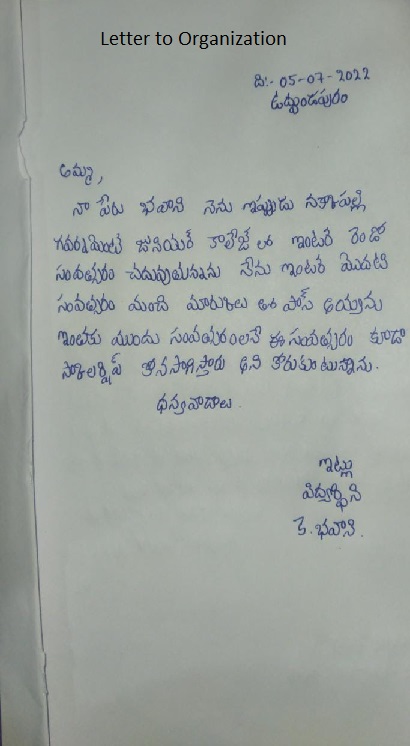 Letter to Organization
ది:- 05-07-2022
ఉద్దండపురం
అమ్మా,
నా పేరు భవాని నేను ఇప్పుడు నక్కాపల్లి
గవర్నమెంట్ జూనియర్ కాలేజ్ లో ఇంటర్ రెండో
సంవత్సరం చదువుతున్నాను నేను ఇంటర్ మొదటి
సంవత్సరం మంచి మార్కులు తో పాస్ అయ్యాను
ఇంతకు ముందు సంవత్సరంలానే ఈ సంవత్సరం కూడా
స్కాలర్షిప్ కొనసాగిస్తారు అని కోరుకుంటున్నాను.
ధన్యవాదాలు.
ఇట్లు
విద్యార్థిని
కె. భవాని.